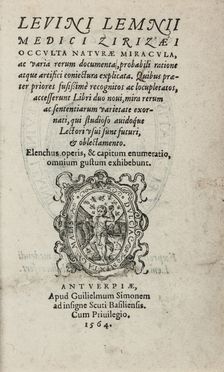 LEVINI LEMNII
MEDICI ZIRIZÆI
OCCVLTA NATVRÆ MIRACVLA,
ac varia rerum documenta, probabili ratione
atque artifici coniectura explicata. Quibus præ-
ter priores fusissimè recognitos ac locupletatos,
accesserunt Libri duo noui, mira rerum
ac sententiarum varietate exor-
nati, qui studioso auidoque
Lectori vsui sunt futuri,
& oblectamento.
Elenchus operis, & capitum enumeratio,
omnium gustum exhibebunt.
ANTVERPIÆ,
Apud Guilielmum Simonem
ad insigne Scuti Basiliensis.
Cum Priuilegio.
1564.